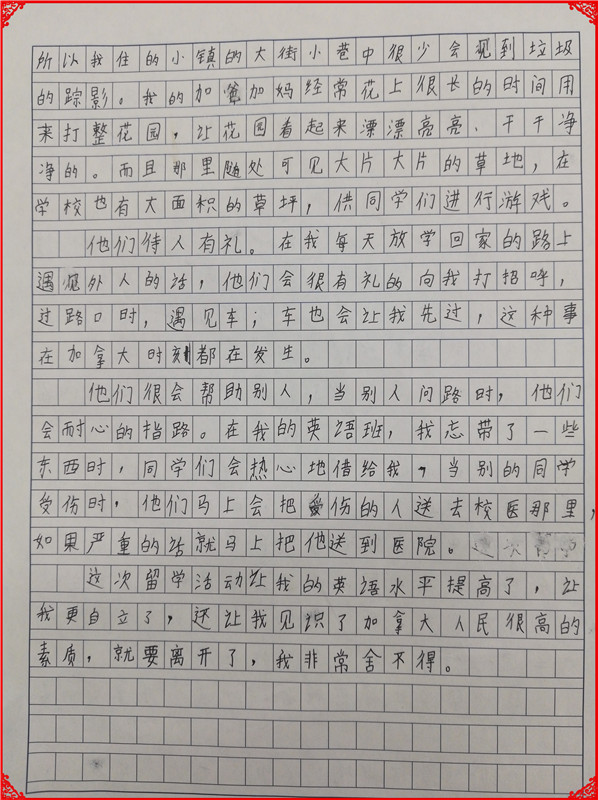 所以我住的小镇的大街小巷中很少会观到垃圾
的踪影。我的加爸加妈经常花上很长的时间用
来打整花园，让花园看起来漂漂亮亮、干干净
净的。而且那里随处可见大片大片的草地，在
学校也有大面积的草坪，供同学们进行游戏。
他们待人有礼。在我每天放学回家的路上
遇见外人的话，他们会很有礼的向我打招呼，
过路口时，遇见车；车也会让我先过，这种事
在加拿大时刻都在发生。
他们很会帮助别人，当别人问路时，他们
会耐心的指路。在我的英语班，我忘带了一些
东西时，同学们会热心地借给我，当别的同学
受伤时，他们马上会把受伤的人送去校医那里，
如果严重的话就马上把他送到医院。
这次留学活动让我的英语水平提高了，让
我更自立了，还让我见识了加拿大人民很高的
素质，就要离开了，我非常舍不得。